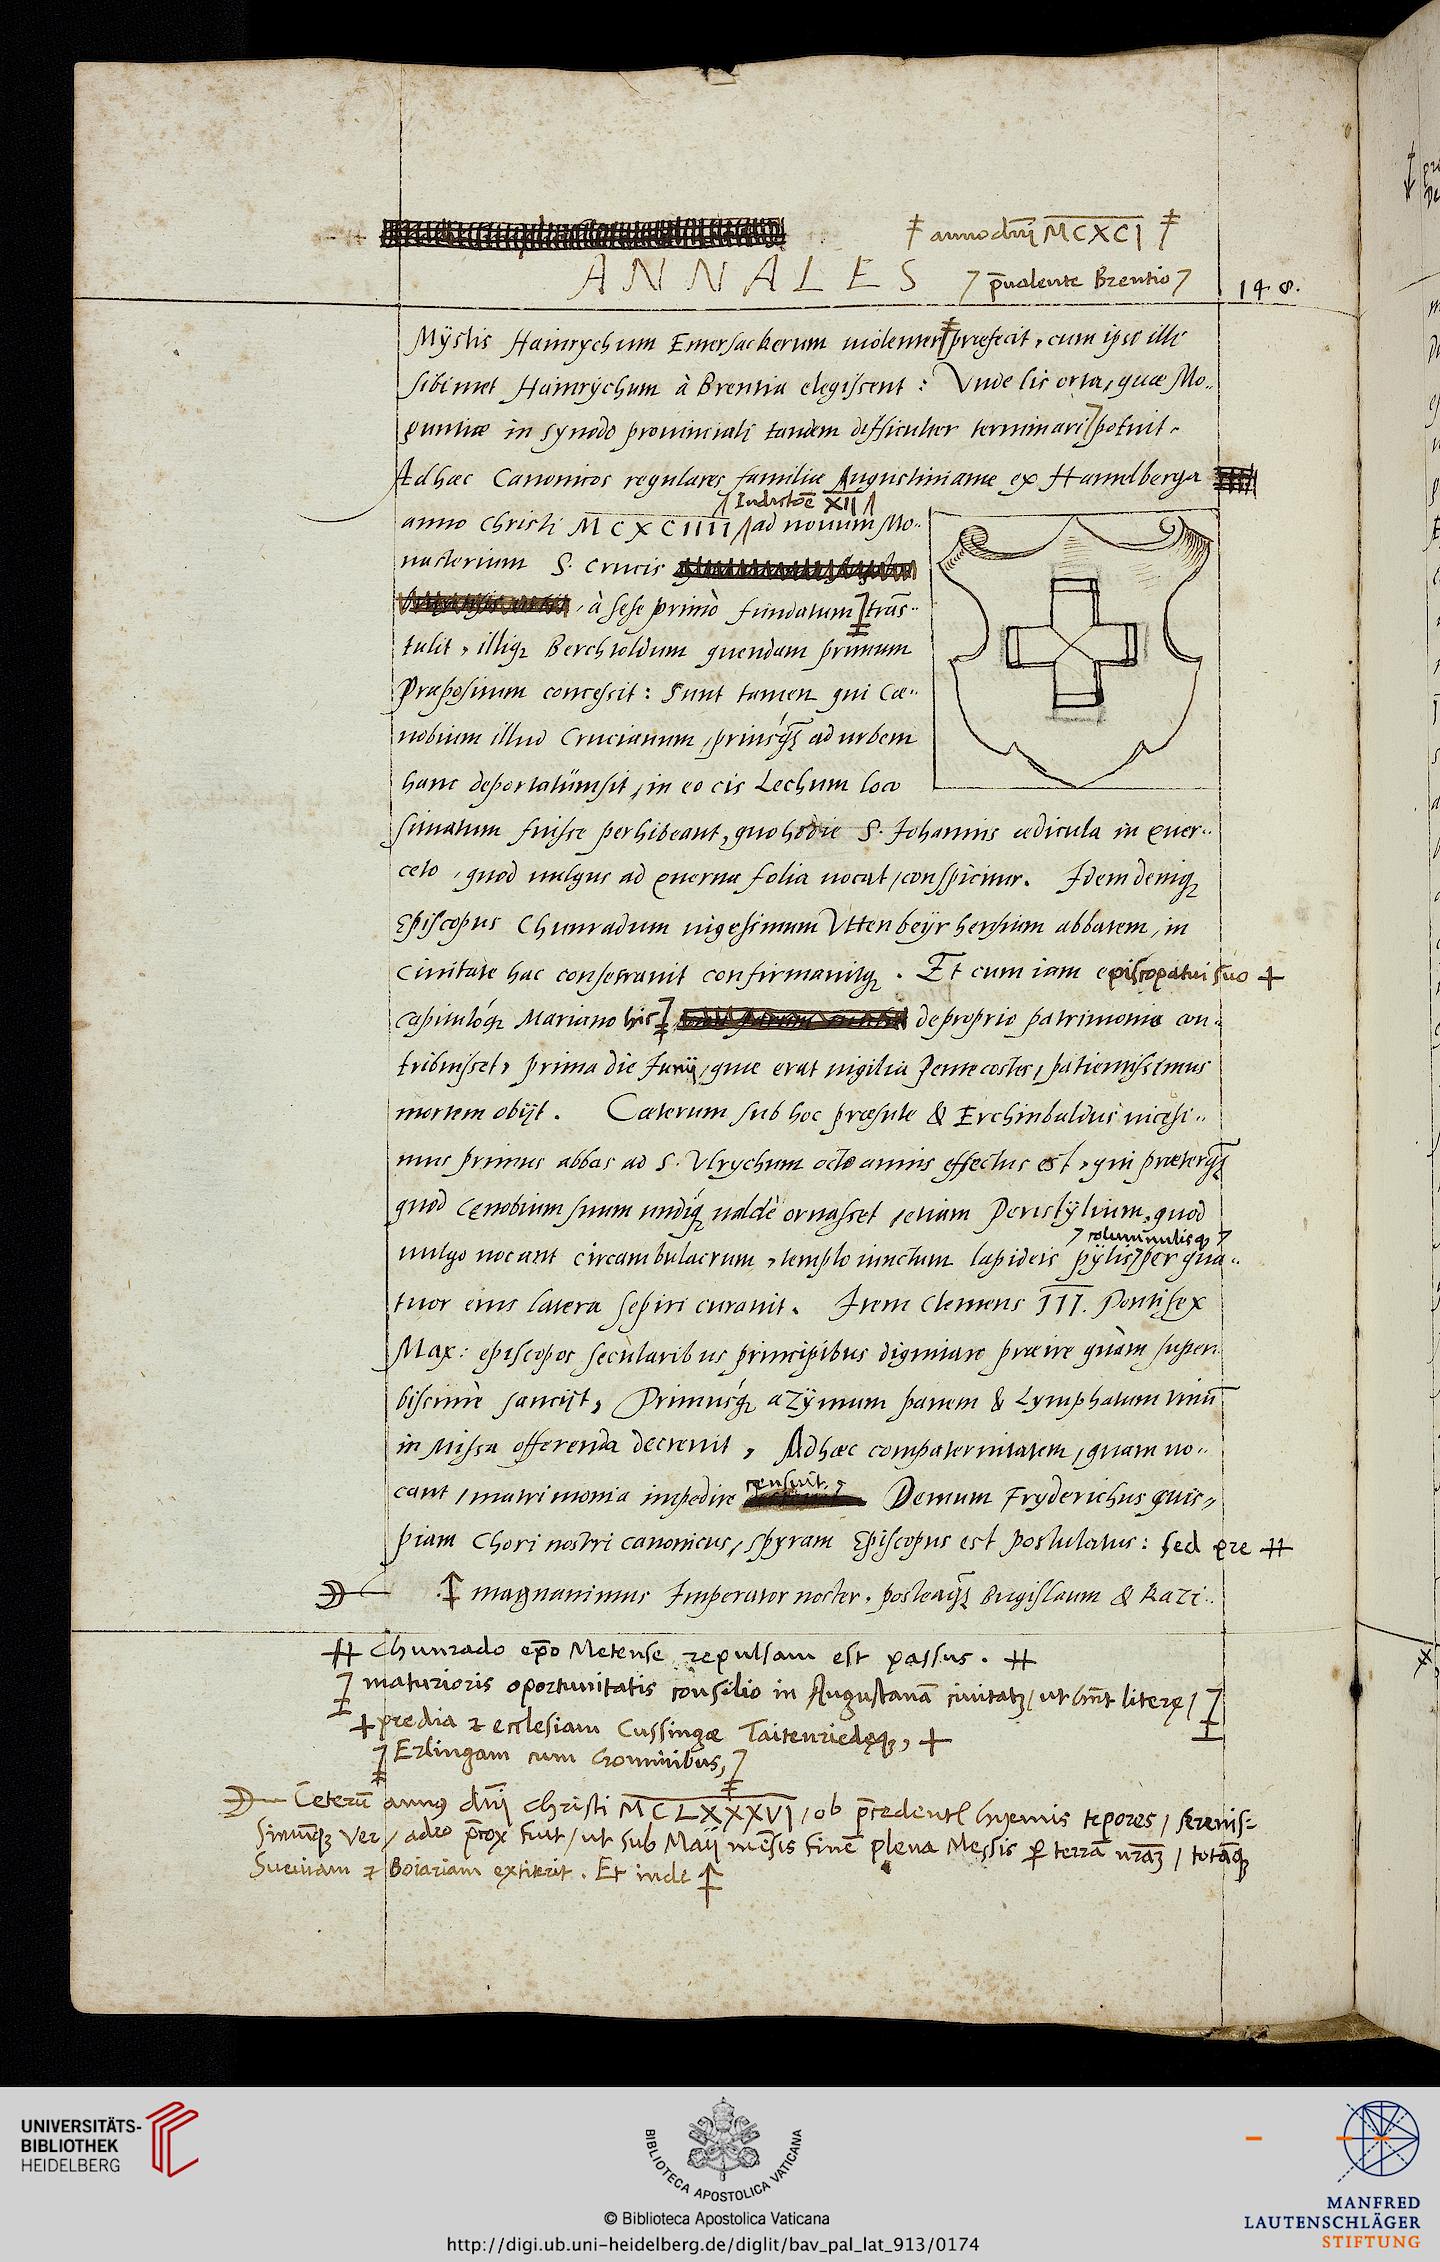 ‡ anno dnj MCXCI ‡
ANNALES
p̄ualente Brentio
148.
Mÿstis Hainrychum Emersackerum uiolenter præfecit, cum ipsi illi
sibimet Hainrÿchum à Brentia elegissent: Vnde lis orta, quæ Mo-
guntiæ in synodo prouinciali tandem difficulter terminari potuit.
Adhæc Canonicos regulares familiæ Augustinianæ ex Hamelberga
Indictōe XII
anno Christi MCXCIIII ad nouum Mo-
nasterium S. Crucis
à sese primò fundatum trās-
tulit, illiq₃ Berchtoldum quendam primum
Præpositum concessit: Sunt tamen qui Cæ-
nobium illud Crucianum, priusq̄₃ ad urbem
hanc deportatũm sit, in eo cis Lechum loco
situatum fuisse perhibeant, quo hodie S. Johannis ædicula in quer-
ceto, quod uulgus ad querna folia uocat, conspicitur. Idem deniq₃
Episcopus Chunradum uigesimum Vttenbeÿrhensium abbatem, in
ciuitate hac consecrauit confirmauitq₃. Et cum iam episcopatui suo +
capitulóq₃ Mariano his de proprio patrimonio con-
tribuisset, prima die Junij, quæ erat uigilia Pentecostes, patientissimus
mortem obijt. Cæterum sub hoc præsule & Erchinbaldus uicesi-
mus primus abbas ad S. Vlrychum octo annis effectus est, qui præterq̄₃
quod Cęnobium suum undiq₃ ualdè ornasset, etiam Peristÿlium, quod
columnulisq₃
uulgo uocant circambulacrum, templo iunctum lapideis pÿlis per qua-
tuor eius latera sepiri curauit. Item Clemens III. Pontifex
Max: episcopos secularibus principibus dignitate præire quàm super-
bissimè sancijt, Primusq₃ azÿmum panem & Lymphatum uinū
in Missa offerenda decreuit, Adhæc compaternitatem, quam uo-
censuit.
cant, matrimonia impedire Demum Fryderichus quis-
piam Chori nostri canonicus, Spyram Episcopus est postulatus: sed pre #
magnanimus Imperator noster, posteaq̄₃ Bugislaum & Kazi-
# Chunrado epō Metense repulsam est passus. #
maturioris oportunitatis consilio in Augustanā ciuitatē, ut hn̄t literę,
+ predia & ecclesiam Cussingæ Taitenriedęq₃, +
Erlingam cum hominibus,
Ceterū annus dnj Christi MCLXXXVI, ob p̄cedentis hyemis tepores, serenis-
simumq₃ Ver, adeo p̄cox fuit, ut sub Maij mēsis finē plena Messis ꝑ terrā nr̄am, totāq₃
Sueuiam & Boiariam extiterit. Et inde
UNIVERSITÄTS-
BIBLIOTHEK
HEIDELBERG
BIBLIOTECA APOSTOLICA VATICANA
© Biblioteca Apostolica Vaticana
http://digi.ub.uni-heidelberg.de/diglit/bav_pal_lat_913/0174
MANFRED
LAUTENSCHLÄGER
STIFTUNG